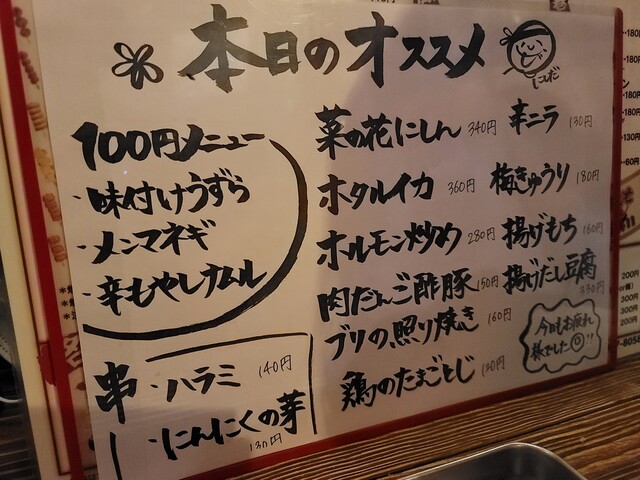 本日のオススメ
100円メニュー
・味付けうずら
・メンマネギ
・辛もやしナムル
串・ハラミ 140円
・にんにくの芽 130円
菜の花にしん 340円
ホタルイカ 360円
ホルモン炒め 280円
肉だんご酢豚 150円
ブリの照り焼き 160円
鶏のたまごとじ 130円
辛ニラ 130円
梅きゅうり 180円
揚げもち 160円
揚げだし豆腐
今日もお疲れ
様でした!!